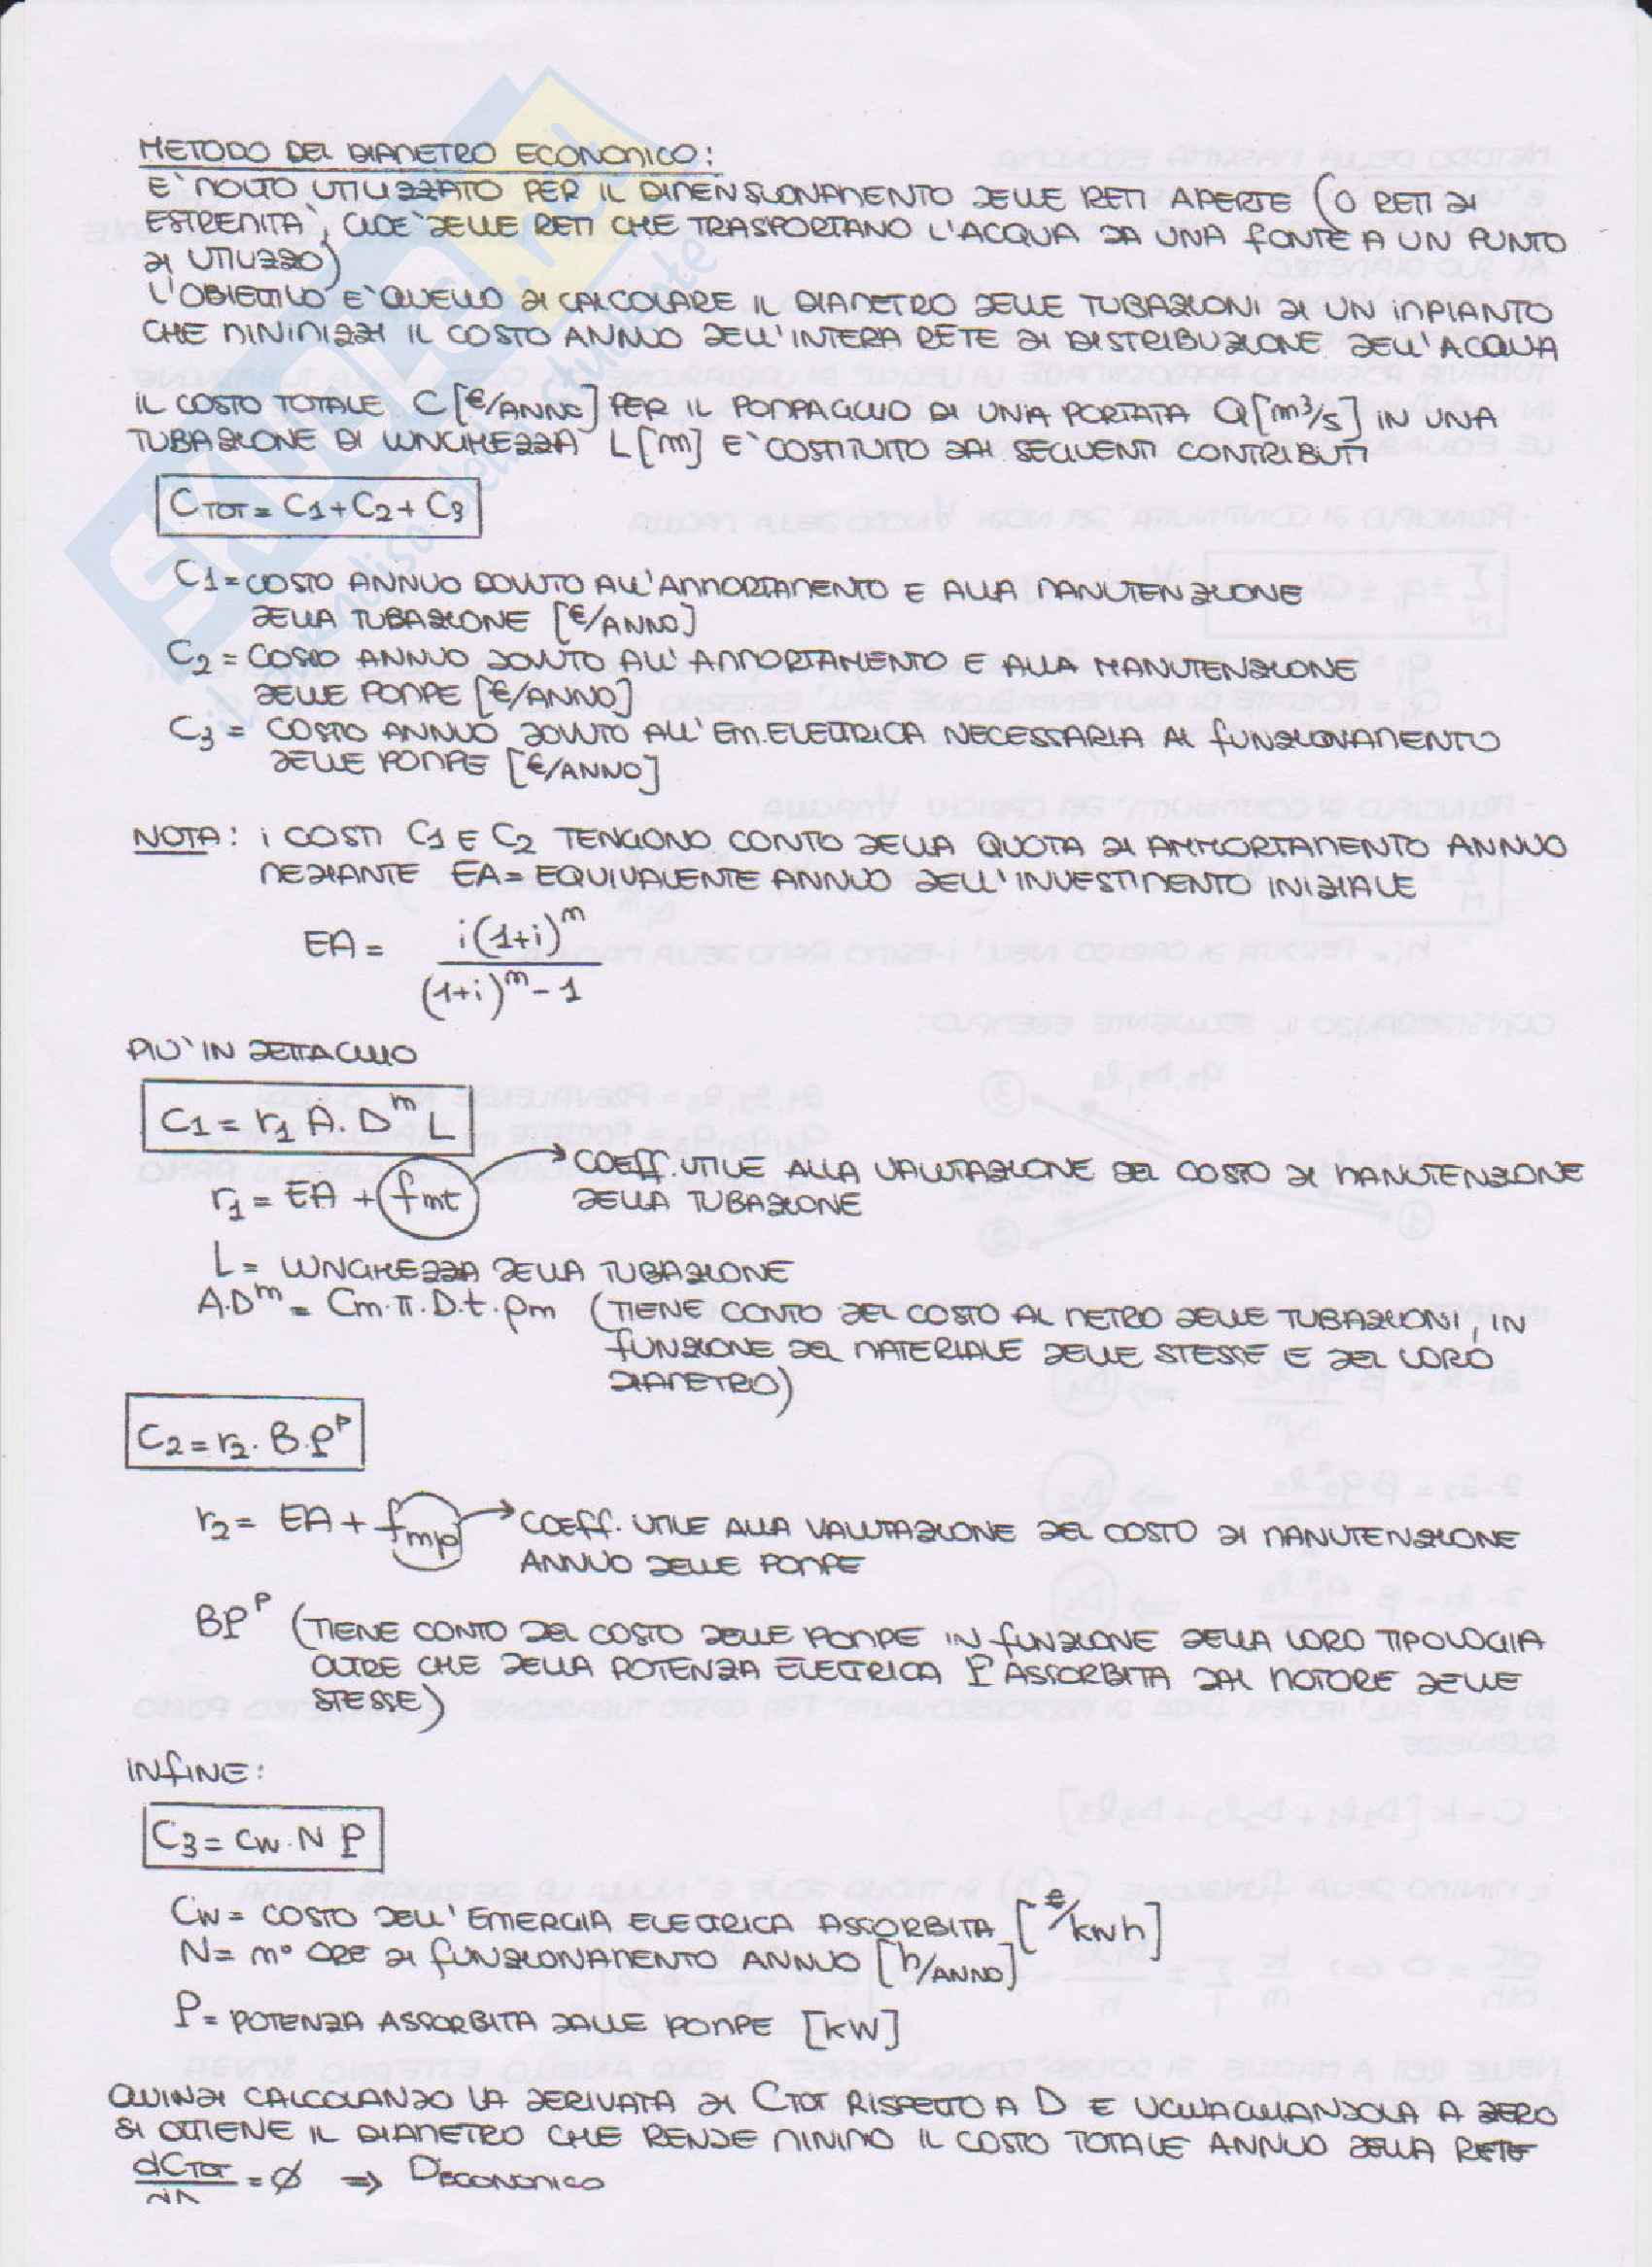 METODO DEL DIAMETRO ECONOMICO:
E' MOLTO UTILIZZATO PER IL DIMENSIONAMENTO DELLE RETI APERTE (O RETI DI
ESTREMITA', CIOE' DELLE RETI CHE TRASPORTANO L'ACQUA DA UNA FONTE A UN PUNTO
DI UTILIZZO)
L'OBIETTIVO E' QUELLO DI CALCOLARE IL DIAMETRO DELLE TUBAZIONI DI UN IMPIANTO
CHE MINIMIZZI IL COSTO ANNUO DELL'INTERA RETE DI DISTRIBUZIONE DELL'ACQUA
IL COSTO TOTALE C [€/ANNO] PER IL POMPAGGIO DI UNA PORTATA Q [m³/s] IN UNA
TUBAZIONE DI LUNGHEZZA L [m] E' COSTITUITO DAI SEGUENTI CONTRIBUTI
CTOT = C1 + C2 + C3
C1 = COSTO ANNUO DOVUTO ALL'AMMORTAMENTO E ALLA MANUTENZIONE
DELLA TUBAZIONE [€/ANNO]
C2 = COSTO ANNUO DOVUTO ALL'AMMORTAMENTO E ALLA MANUTENZIONE
DELLE POMPE [€/ANNO]
C3 = COSTO ANNUO DOVUTO ALL'EN. ELETTRICA NECESSARIA AL FUNZIONAMENTO
DELLE POMPE [€/ANNO]
NOTA: i COSTI C1 E C2 TENGONO CONTO DELLA QUOTA DI AMMORTAMENTO ANNUO
MEDIANTE EA = EQUIVALENTE ANNUO DELL'INVESTIMENTO INIZIALE
EA = i(1+i)^n / (1+i)^n - 1
PIU' IN DETTAGLIO
C1 = r1 A · D^m L
r1 = EA + fmt → COEFF. UTILE ALLA VALUTAZIONE DEL COSTO DI MANUTENZIONE
DELLA TUBAZIONE
L = LUNGHEZZA DELLA TUBAZIONE
A·D^m = Cm·π·D·t·ρm (TIENE CONTO DEL COSTO AL METRO DELLE TUBAZIONI, IN
FUNZIONE DEL MATERIALE DELLE STESSE E DEL LORO
DIAMETRO)
C2 = r2 · B·P^P
r2 = EA + fmp → COEFF. UTILE ALLA VALUTAZIONE DEL COSTO DI MANUTENZIONE
ANNUO DELLE POMPE
BP^P (TIENE CONTO DEL COSTO DELLE POMPE IN FUNZIONE DELLA LORO TIPOLOGIA
OLTRE CHE DELLA POTENZA ELETTRICA P ASSORBITA DAL MOTORE DELLE
STESSE)
INFINE:
C3 = Cw · N P
Cw = COSTO DELL'ENERGIA ELETTRICA ASSORBITA [€/kWh]
N = n° ORE DI FUNZIONAMENTO ANNUO [h/ANNO]
P = POTENZA ASSORBITA DALLE POMPE [kW]
QUINDI CALCOLANDO LA DERIVATA DI CTOT RISPETTO A D E UGUAGLIANDOLA A ZERO
SI OTTIENE IL DIAMETRO CHE RENDE MINIMO IL COSTO TOTALE ANNUO DELLA RETE
dCTOT/dD = Ø ⇒ DECONOMICO